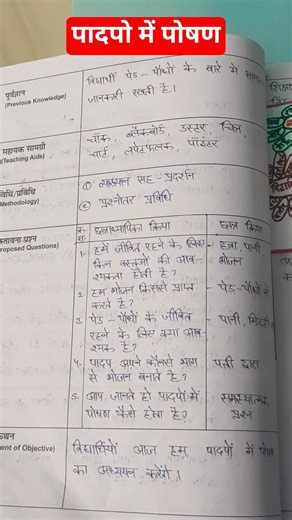 पादपो में पोषण
पूर्वज्ञान
(Previous Knowledge)
विद्यार्थी पेड़-पौधों के बारे में सामान्य
जानकारी रखती है।
सहायक सामग्री
(Teaching Aids)
चॉक, ब्लैकबोर्ड, डस्टर, चित्र,
चार्ट, लपेटफलक, पॉइंटर
विधि/प्रविधि
Methodology)
① व्याख्यान सह-प्रदर्शन
② प्रश्नोत्तर प्रविधि
प्रस्तावना प्रश्न
roposed Questions)
क्र. सं. छात्राध्यापिका क्रिया छात्र क्रिया
1. हमें जीवित रहने के लिए हवा, पानी
किन वस्तुओं की आव- भोजन
श्यकता होती है?
2. हम भोजन किससे प्राप्त - पेड़-पौधों से
करते है?
3. पेड़-पौधों के जीवित - पानी, मिट्टी
रहने के लिए क्या आव-
श्यक है?
4. पादप अपने कौनसे भाग - पत्ती द्वारा
से भोजन बनाते है?
5. आप जानते हो पादपों में - समस्यात्मक
पोषण कैसे होता है? प्रश्न
कथन
ent of Objective)
विद्यार्थियों आज हम पादपों में पोषण
का अध्ययन करेंगे।